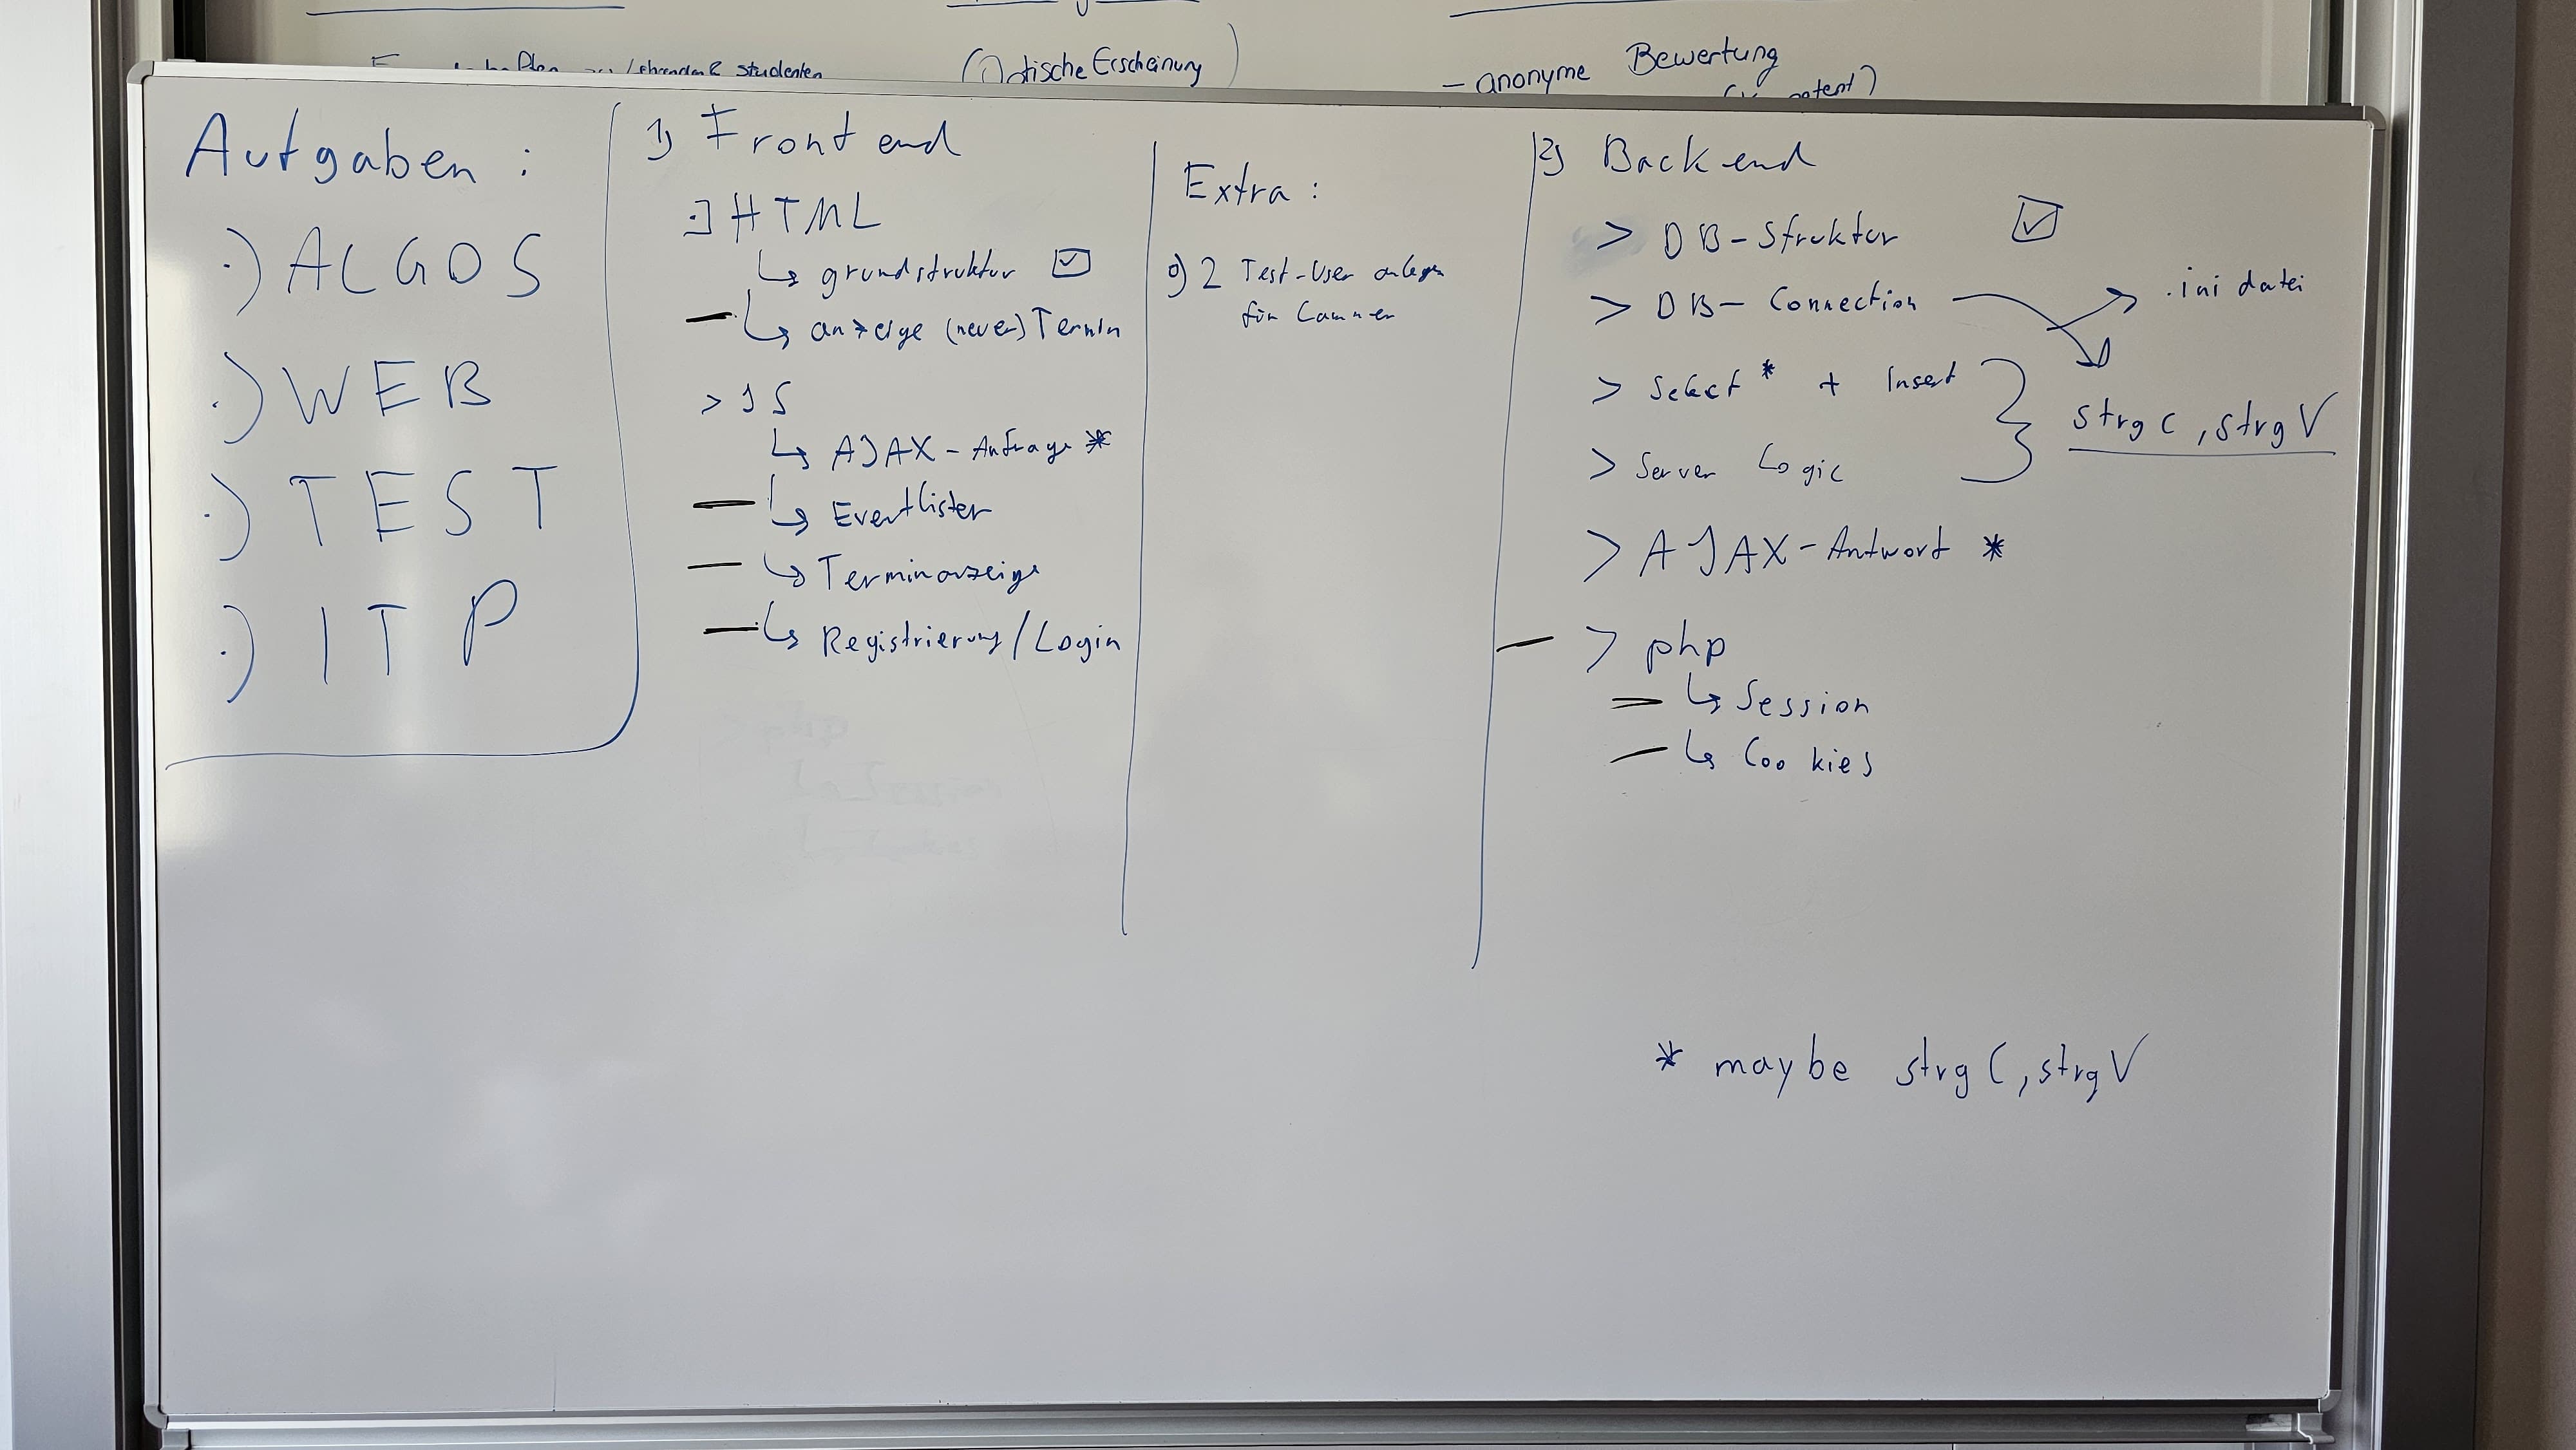 Lehrende & Studenten
(Optische Erscheinung)
Bewertung
- anonyme
Aufgaben :
·) ALGOS
·) WEB
·) TEST
·) ITP
1) Frontend
·] HTML
↳ grundstruktur ☑
— ↳ anzeige (neuer) Termin
> JS
↳ AJAX - Anfrage *
— ↳ Eventlister
— ↳ Terminanzeige
— ↳ Registrierung / Login
Extra :
o) 2 Test-User anlegen
für
2) Backend
> DB-Struktur ☑
> DB- Connection → .ini datei
> Select * + Insert
> Server Logic
} strg C, strg V
> AJAX-Antwort *
— > php
— ↳ Session
— ↳ Cookies
* maybe strg C, strg V